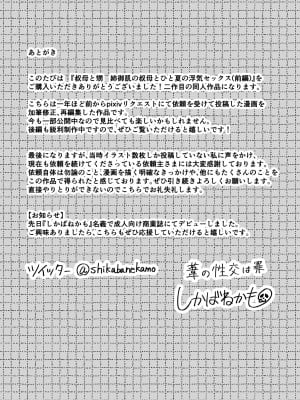 あとがき
このたびは『叔母と甥 姉御肌の叔母とひと夏の浮気セックス(前編)』を
ご購入いただきありがとうございました!二作目の同人作品になります。
こちらは一年ほど前からpixivリクエストにて依頼を受けて投稿した漫画を
加筆修正、再編集した作品です。
今も一部公開中なので見比べても楽しいかもしれません。
後編も鋭利制作中ですので、ぜひご覧いただけると嬉しいです!
最後になりますが、当時イラスト数枚しか投稿していない私に声をかけ、
現在も依頼を続けてくださっている依頼主さまには大変感謝しております。
依頼自体は勿論のこと、漫画を描く明確なきっかけや、他にもたくさんのことを
この作品で得られたと感じております。ぜひ引き続きよろしくお願いします。
直接やりとりができないのでこちらでお礼失礼します。
【お知らせ】
先日『しかばねかも』名義で成人向け商業誌にてデビューしました。
ご興味ありましたら、こちらもぜひ応援していただけると嬉しいです。
ツイッター @shikabanekamo
葦の性交は罪
しかばねかも